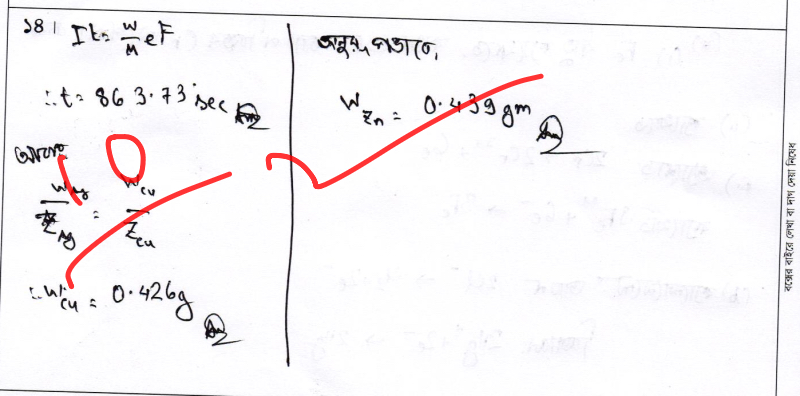 ১৪।
It = W/M eF
∴ t = 863.73 sec Ans
আবার,
W_Ag/Z_Ag = W_cu/Z_cu
∴ W_cu = 0.426g
Ans
অনুরূপভাবে,
W_Zn = 0.439 gm
Ans
10
বক্সের বাইরে লেখা বা দাগ দেয়া নিষেধ